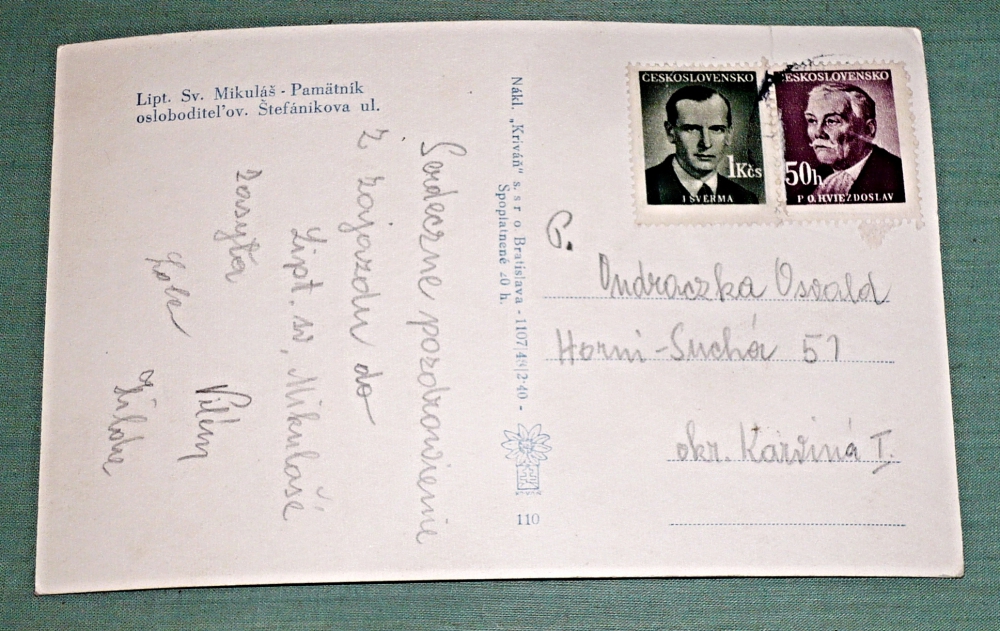 Lipt. Sv. Mikuláš - Pamätník
osloboditeľov. Štefánikova ul.
Serdeczne pozdrowienie
z zajazdu do
Lipt. sv. Mikulaše
zasyła
Vilém
Nákl. „Kriváň" s. s r. o. Bratislava - 1107/48/2·40 -
Spoplatnené 20 h.
110
ČESKOSLOVENSKO
1Kčs
J ŠVERMA
ČESKOSLOVENSKO
50h
P O. HVIEZDOSLAV
P.
Ondraczka Osvald
Horni-Suchá 51
okr. Karviná I.